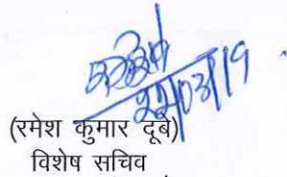 22/03/19
(रमेश कुमार दूबे)
विशेष सचिव